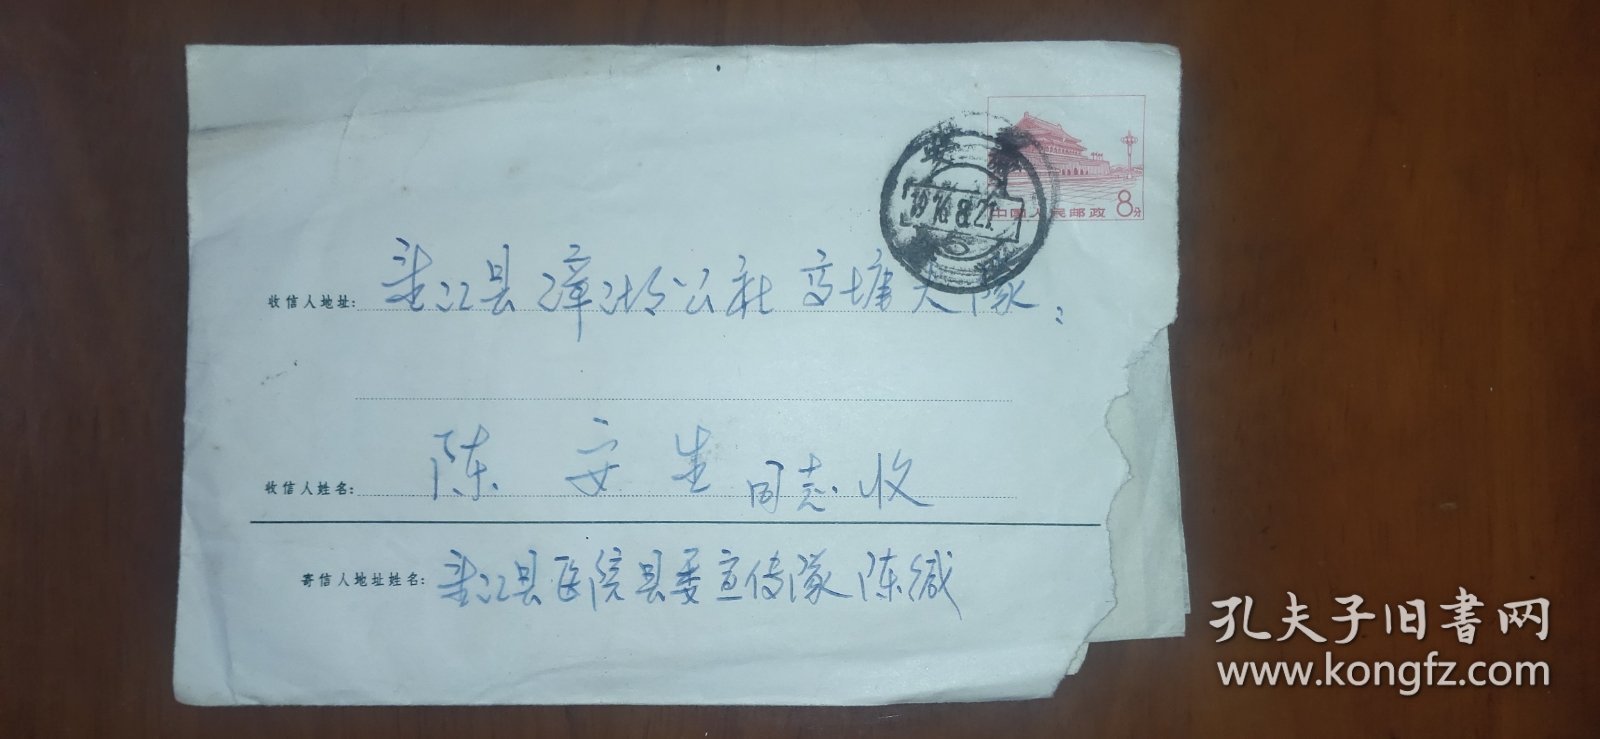 中国人民邮政 8分
1976.8.21
收信人地址: 望江县漳湖公社高塘大队:
收信人姓名: 陈安生 同志 收
寄信人地址姓名: 望江县医院县委宣传队 陈缄
孔夫子旧书网
www.kongfz.com